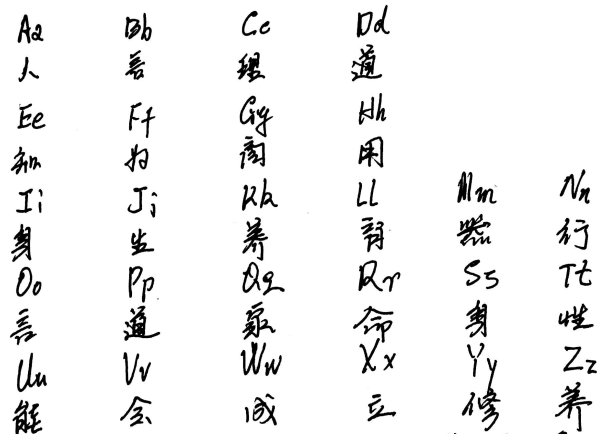 Aa Bb Cc Dd
人 善 理 道
Ee Ff Gg Hh
知 为 用
Ii Jj Kk Ll Mm Nn
身 生 养 育 器 行
Oo Pp Qq Rr Ss Tt
言 道 家 命 身 性
Uu Vv Ww Xx Yy Zz
能 会 成 立 修 养